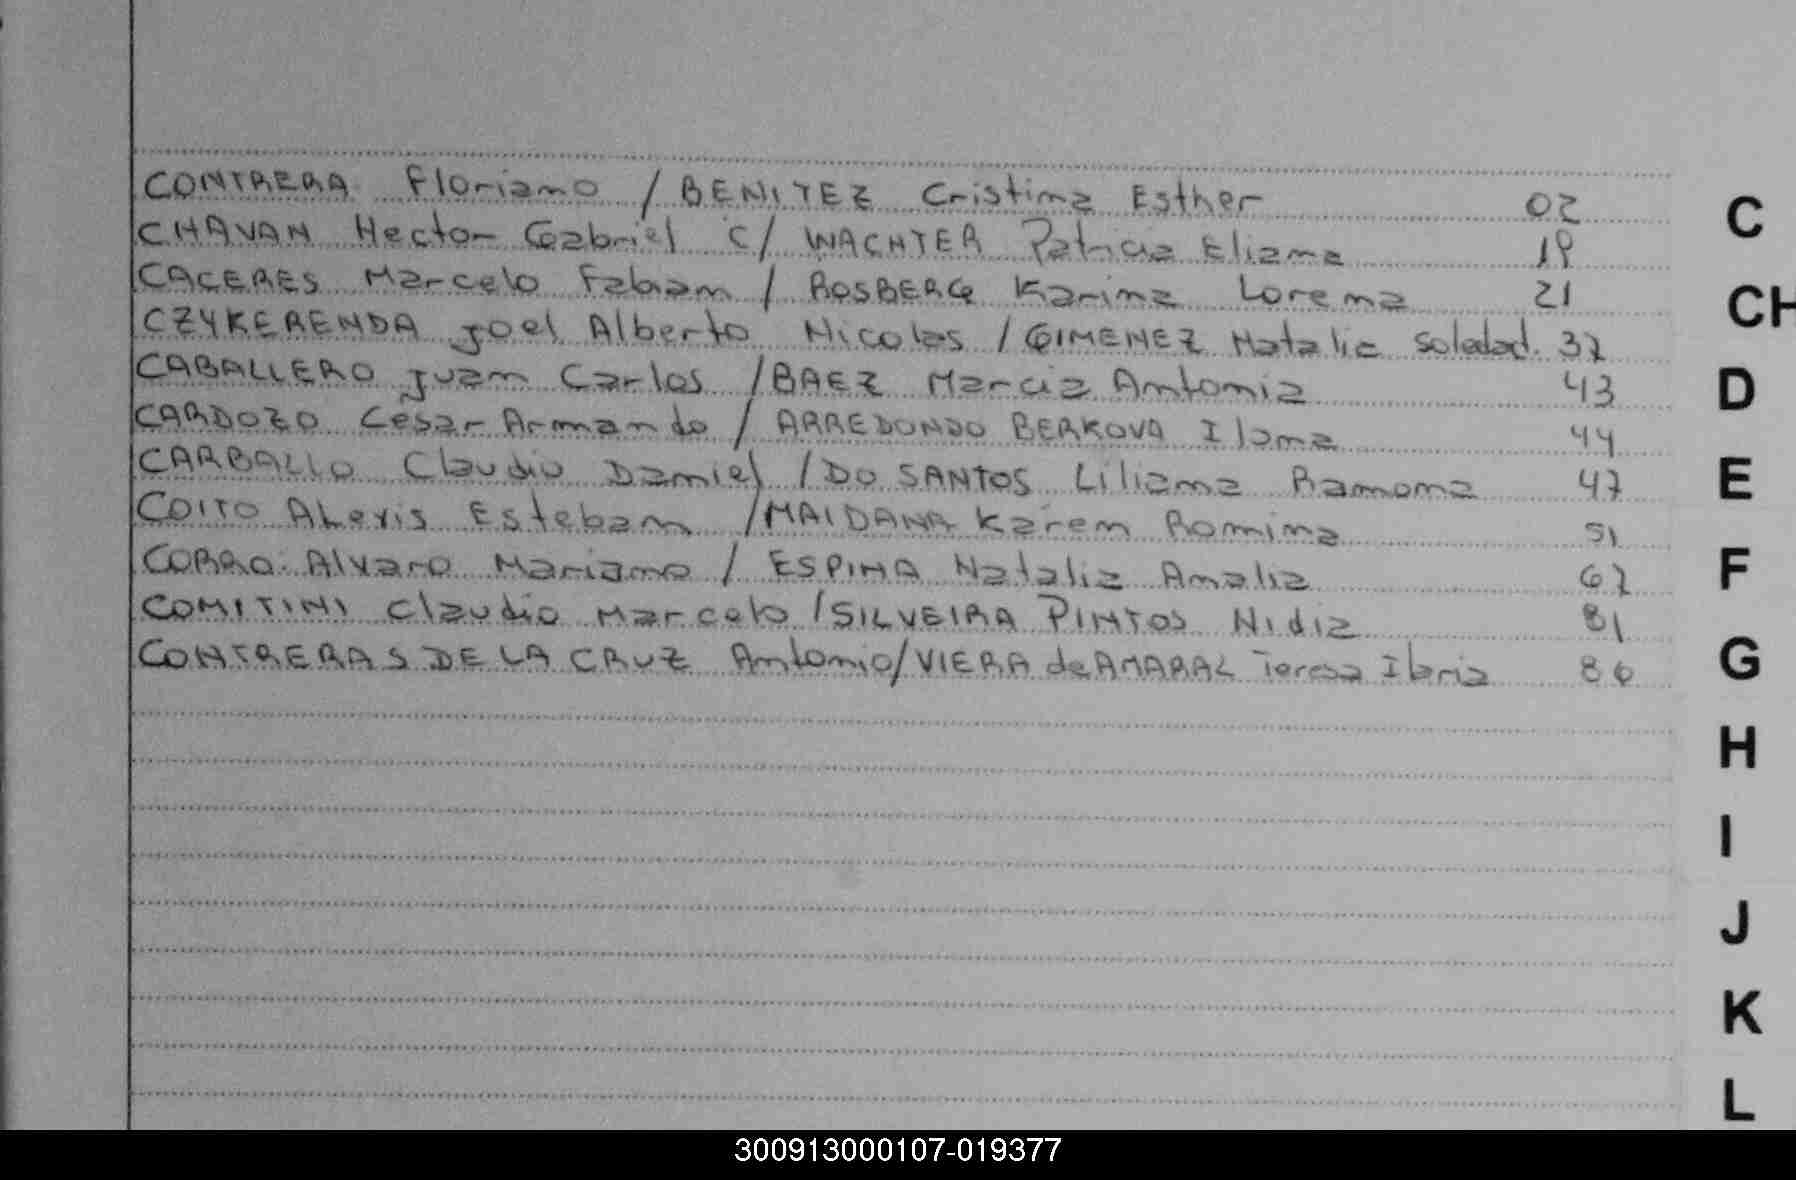 CONTRERA Floriano / BENITEZ Cristina Esther 02
CHAVAN Hector Gabriel C/ WACHTER Patricia Eliana 19
CACERES Marcelo Fabian / ROSBERG Karina Lorena 21
CZYKERENDA Joel Alberto Nicolas / GIMENEZ Natalia Soledad 37
CABALLERO Juan Carlos / BAEZ Marcia Antonia 43
CARDOZO Cesar Armando / ARREDONDO BERKOVA Ilona 44
CARBALLO Claudio Daniel / DO SANTOS Liliana Ramona 47
COITO Alexis Esteban / MAIDANA Karen Romina 51
CORRO Alvaro Mariano / ESPINA Natalia Analia 67
COMITINI Claudio Marcelo / SILVEIRA PINTOS Nidia 81
CONTRERAS DE LA CRUZ Antonio / VIERA de AMARAL Teresa 86
C
CH
D
E
F
G
H
I
J
K
L
300913000107-019377